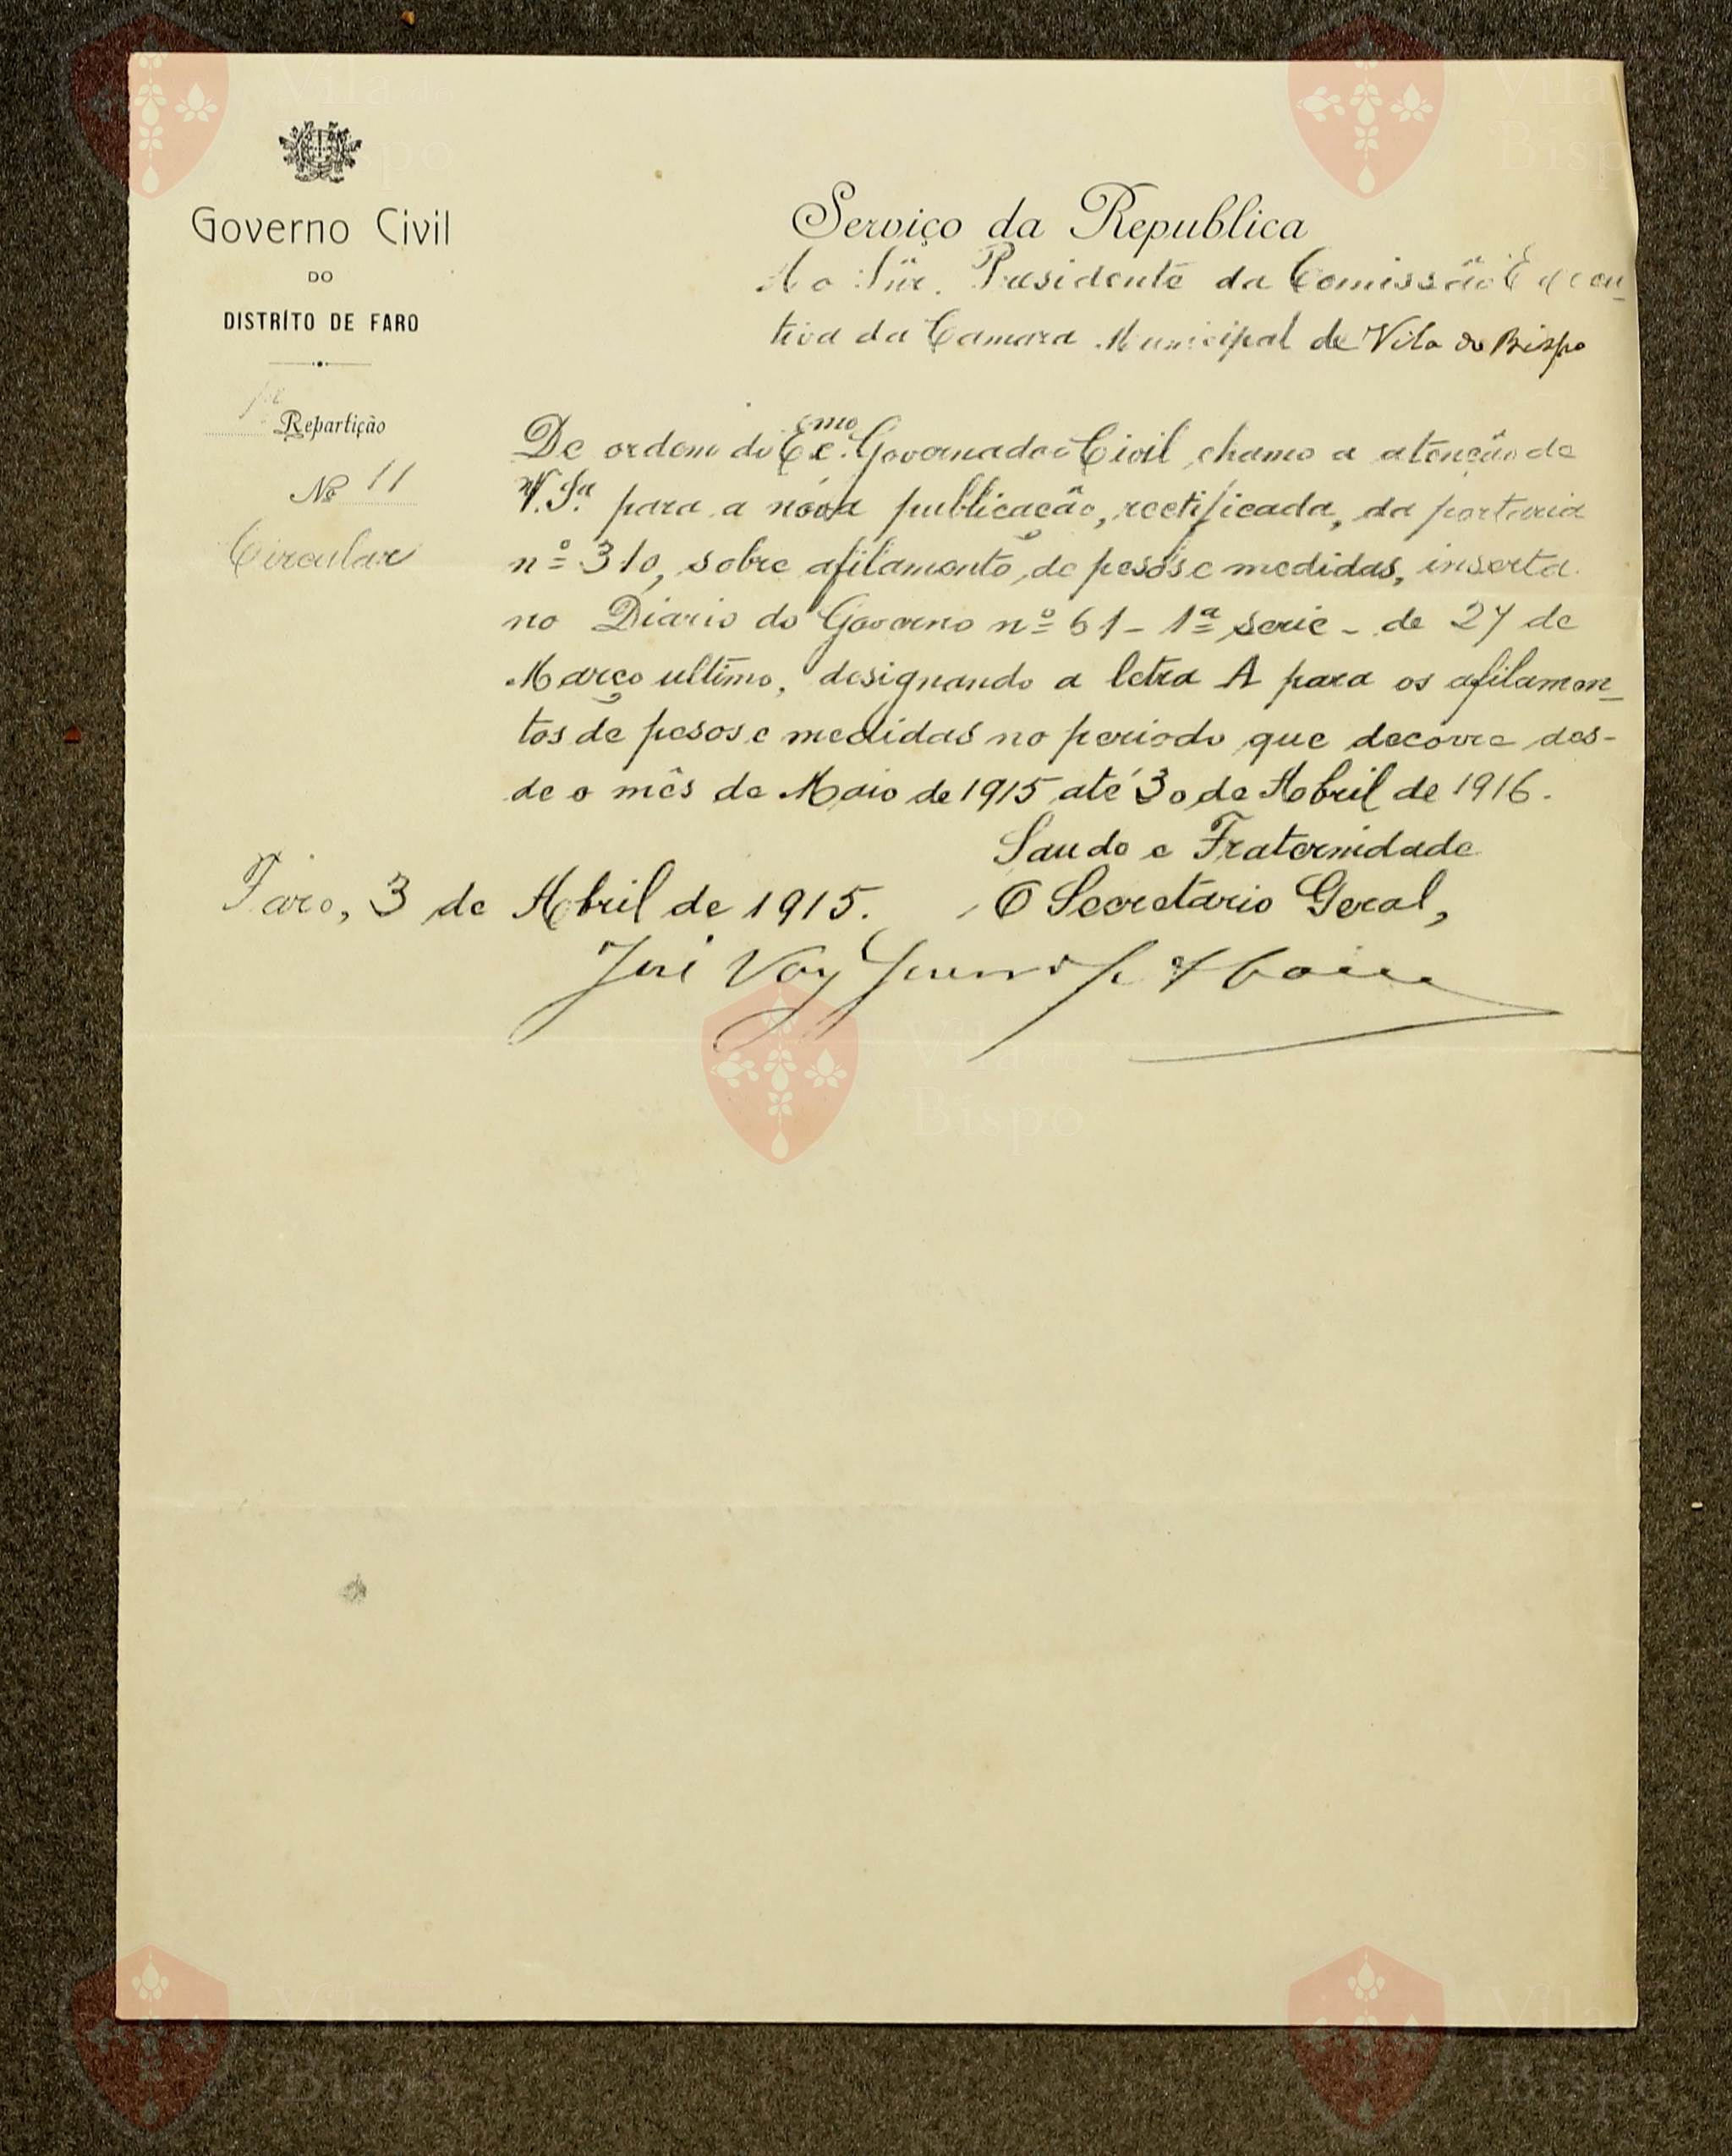 Governo Civil
DO
DISTRÍTO DE FARO
1ª Repartição
Nº 11
Circular
Serviço da Republica
Ao Snr. Presidente da Comissão Execu-
tiva da Camara Municipal de Vila do Bispo
De ordem do Exᵉmo. Governador Civil chamo a atenção de
V. Sª para a nóva publicação, rectificada, da portaria
nº 310, sobre afilamento de pesos e medidas, inserta
no Diario do Governo nº 61 - 1ª serie - de 27 de
Março ultimo, designando a letra A para os afilamen-
tos de pesos e medidas no periodo que decorre des-
de o mês de Maio de 1915 até 30 de Abril de 1916.
Saude e Fraternidade
Faro, 3 de Abril de 1915. O Secretario Geral,
José Vaz
Vila do
Bispo